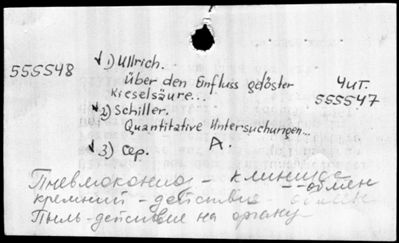 1) Ullrich.
555548
Über den Einfluss gelöster
Kieselsäure...
Чит.
555547
2) Schiller.
Quantitative Untersuchungen...
3) Сер. А.
Пневмокониоз - клиника
кремний - действие - обмен
Пыль - действие на органу